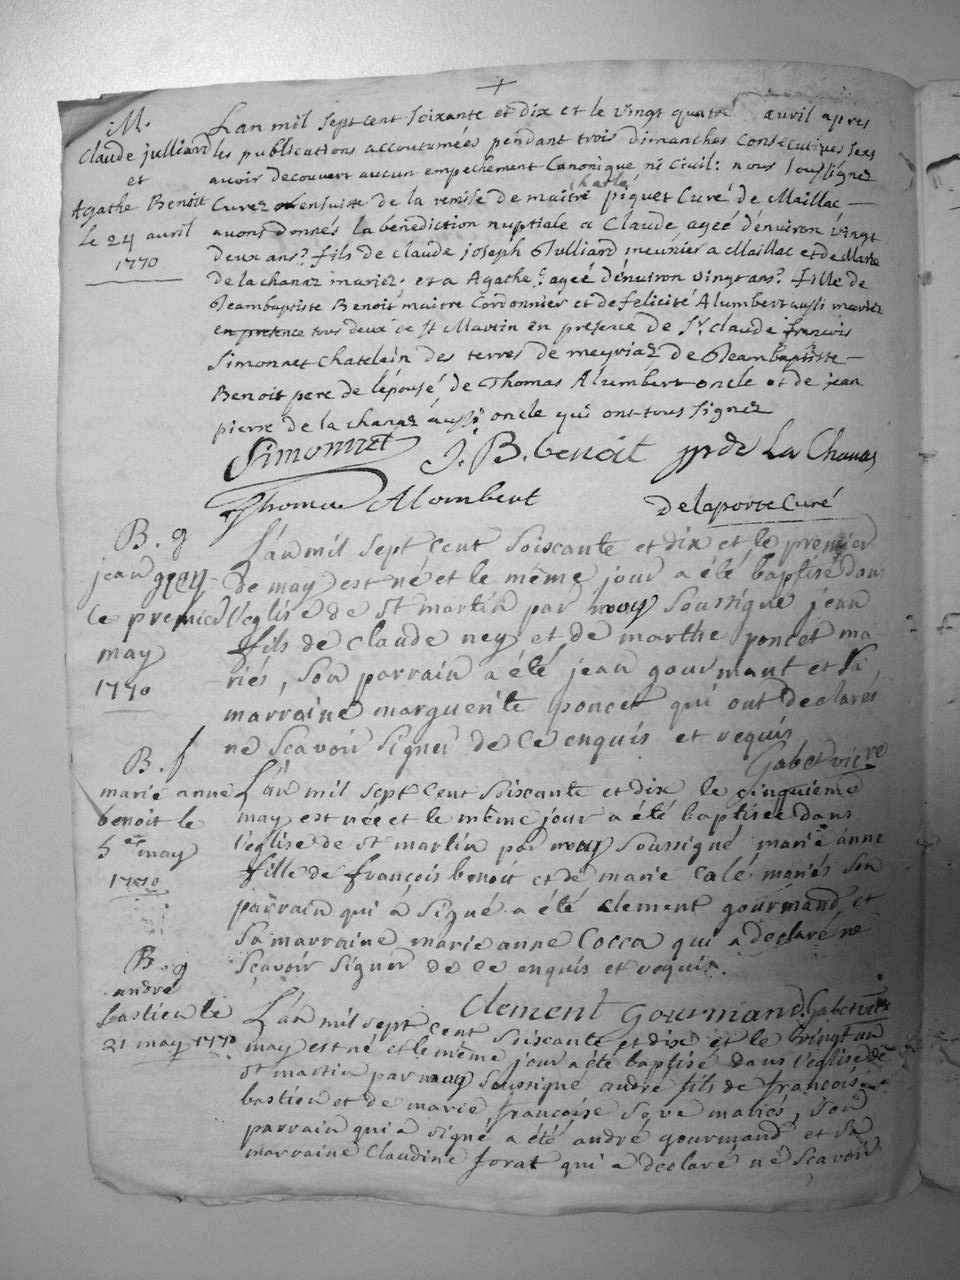 M.
Claude julliard
et
Agathe Benoit
le 24 avril
1770
Lan mil sept cent soixante et dix et le vingt quatre avril apres
les publications accoutumées pendant trois dimanches consecutives sans
avoir decouvert aucun empechement Canonique ni Civil: nous soussignez
Curez ensuitte de la remise de maitre charles piquet Curé de Maillac
avons donnés la bénédiction nuptiale a Claude ageé d'environ vingt
deux ans fils de claude joseph Julliard meunier a Maillac et de Marie
de la chanaz mariez; et a Agathe ageé d'environ vingt ans fille de
Jeambaptiste Benoit maitre Cordonnier et de felicité Alumbert aussi mariez
en presence tous deux de st Martin en presence de sr. claude francois
Simonnet chatelain des terres de meyriaz de Jeambaptiste
Benoit pere de l'épousé, de Thomas Alumbert oncle et de jean
pierre de la chanaz aussi oncle qui ont tous signez
Simonnet J. B. benoit jp de La Chanas
Thomas Alombert Delaporte Curé
B. g
jean
le premier
may
1770
L'an mil sept cent soiscante et dix et le premier
de may est né et le même jour a été baptisé dans
l'église de st martin par moy soussigné jean
fils de claude ney et de marthe poncet ma-
riés, son parrain a été jean gourmant et sa
marraine marguerite poncet qui ont declarés
ne scavoir signer de ce enquis et requis
Gabet vicre
B. f
marie anne
benoit le
5 may
1770
L'an mil sept cent soiscante et dix le cinquieme
may est née et le même jour a été baptisée dans
l'église de st martin par moy soussigné marie anne
fille de françois benoit et de marie Calé mariés son
parrain qui a signé a été clement gourmand et
sa marraine marie anne Cocca qui a declaré ne
scavoir signer de ce enquis et requis.
Clement Gourmand Gabet vicre
B. g
andré
bastien le
21 may 1770
L'an mil sept cent soiscante et dix et le vingt un
may est né et le même jour a été baptisé dans l'église de
st martin par moy soussigné andré fils de françois
bastien et de marie françoise mariés, son
parrain qui a signé a été andré gourmand et sa
marraine Claudine jorat qui a declaré ne scavoir